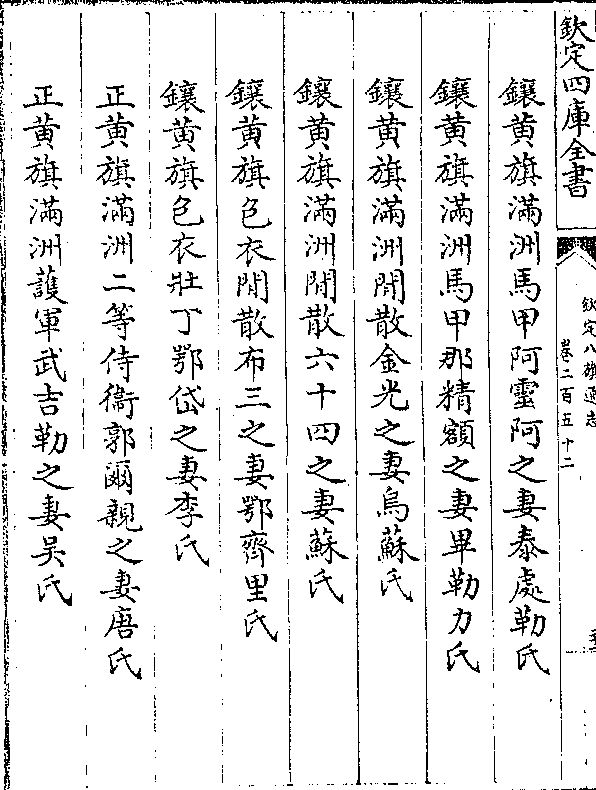 欽定四庫全書
欽定八旗通志
卷二百五十二
鑲黃旗滿洲馬甲阿靈阿之妻泰處勒氏
鑲黃旗滿洲馬甲那精額之妻畢勒力氏
鑲黃旗滿洲閒散金光之妻烏蘇氏
鑲黃旗滿洲閒散六十四之妻蘇氏
鑲黃旗包衣閒散布三之妻鄂齊里氏
鑲黃旗包衣壯丁鄂岱之妻李氏
正黃旗滿洲二等侍衞郭爾親之妻唐氏
正黃旗滿洲護軍武吉勒之妻吴氏